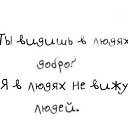 Ты видишь в людях
добро?
Я в людях не вижу
людей.